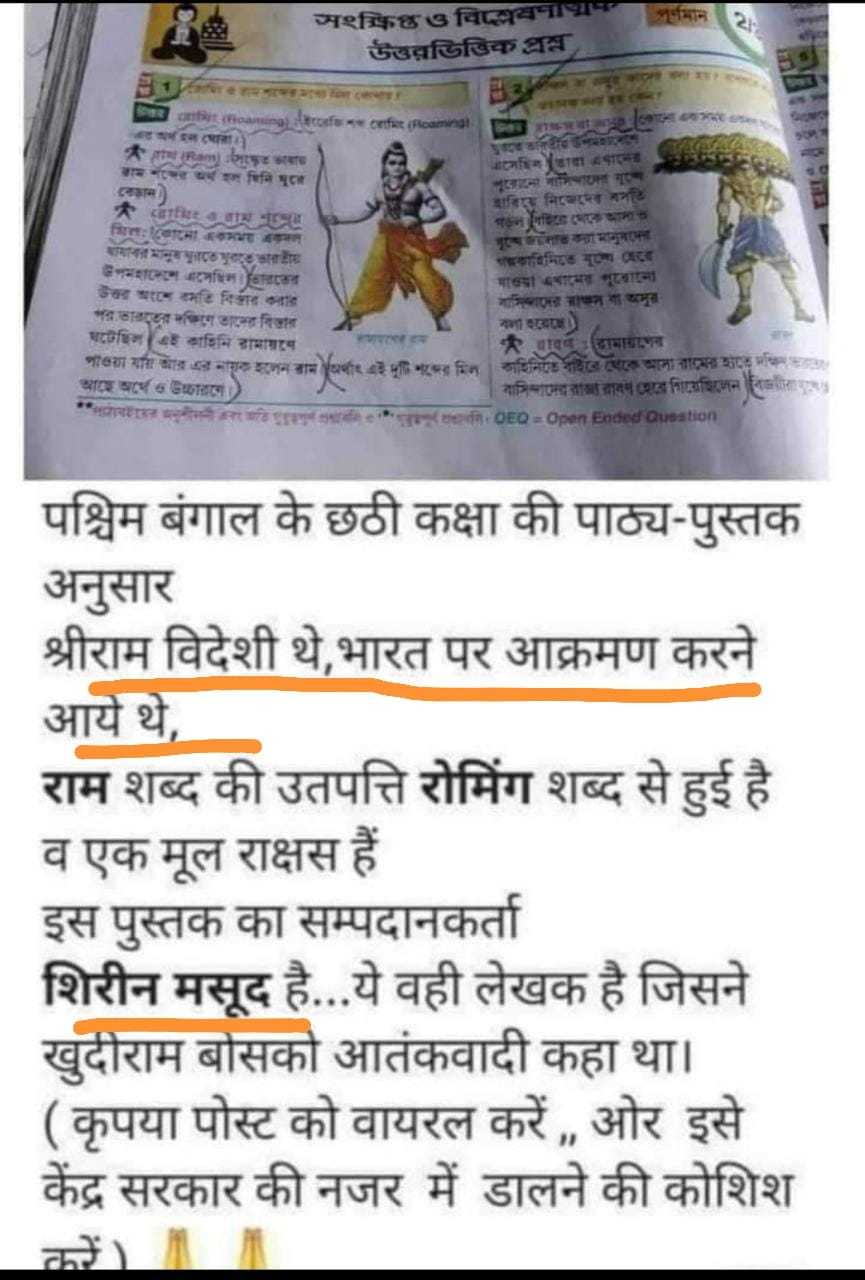 সংক্ষিপ্ত ও বিশ্লেষণাত্মক
পূর্ণমান
উত্তরভিত্তিক প্রশ্ন
1 রোমিং ও রাম শব্দের মধ্যে মিল কোথায়?
উত্তর রোমিং (Roaming): ইংরেজি শব্দ রোমিং (Roaming)
এর অর্থ হল ঘোরা।
রাম (Ram): সংস্কৃত ভাষায়
রাম শব্দের অর্থ হল যিনি ঘুরে
বেড়ান।
রোমিং ও রাম শব্দের
মিল: কোনো একসময় একদল
যাযাবর মানুষ ঘুরতে ঘুরতে ভারতীয়
উপমহাদেশে এসেছিল। ভারতের
উত্তর অংশে বসতি বিস্তার করার
পর ভারতের দক্ষিণে তাদের বিস্তার
ঘটেছিল। এই কাহিনি রামায়ণে
পাওয়া যায় আর এর নায়ক হলেন রাম। অর্থাৎ এই দুটি শব্দের মিল
আছে অর্থে ও উচ্চারণে।
রামায়ণের রাম
2
উত্তর রাক্ষস বা অসুর: কোনো এক সময়
ঘুরতে ভারতীয় উপমহাদেশে
এসেছিল। তারা এখানের
পুরোনো বাসিন্দাদের যুদ্ধে
হারিয়ে নিজেদের বসতি
গড়ল। বাইরে থেকে আসা ও
যুদ্ধে জয়লাভ করা মানুষদের
গল্পকাহিনিতে যুদ্ধে হেরে
যাওয়া এখানের পুরোনো
বাসিন্দাদের রাক্ষস বা অসুর
বলা হয়েছে।
রাবণ: রামায়ণের
কাহিনিতে বাইরে থেকে আসা রামের হাতে দক্ষিণ ভারতের
বাসিন্দাদের রাজা রাবণ হেরে গিয়েছিলেন। বিজয়ীরা যুদ্ধে
OEQ = Open Ended Question
पश्चिम बंगाल के छठी कक्षा की पाठ्य-पुस्तक
अनुसार
श्रीराम विदेशी थे,भारत पर आक्रमण करने
आये थे,
राम शब्द की उतपत्ति रोमिंग शब्द से हुई है
व एक मूल राक्षस हैं
इस पुस्तक का सम्पदानकर्ता
शिरीन मसूद है...ये वही लेखक है जिसने
खुदीराम बोसको आतंकवादी कहा था।
( कृपया पोस्ट को वायरल करें ,, ओर इसे
केंद्र सरकार की नजर में डालने की कोशिश
करें )